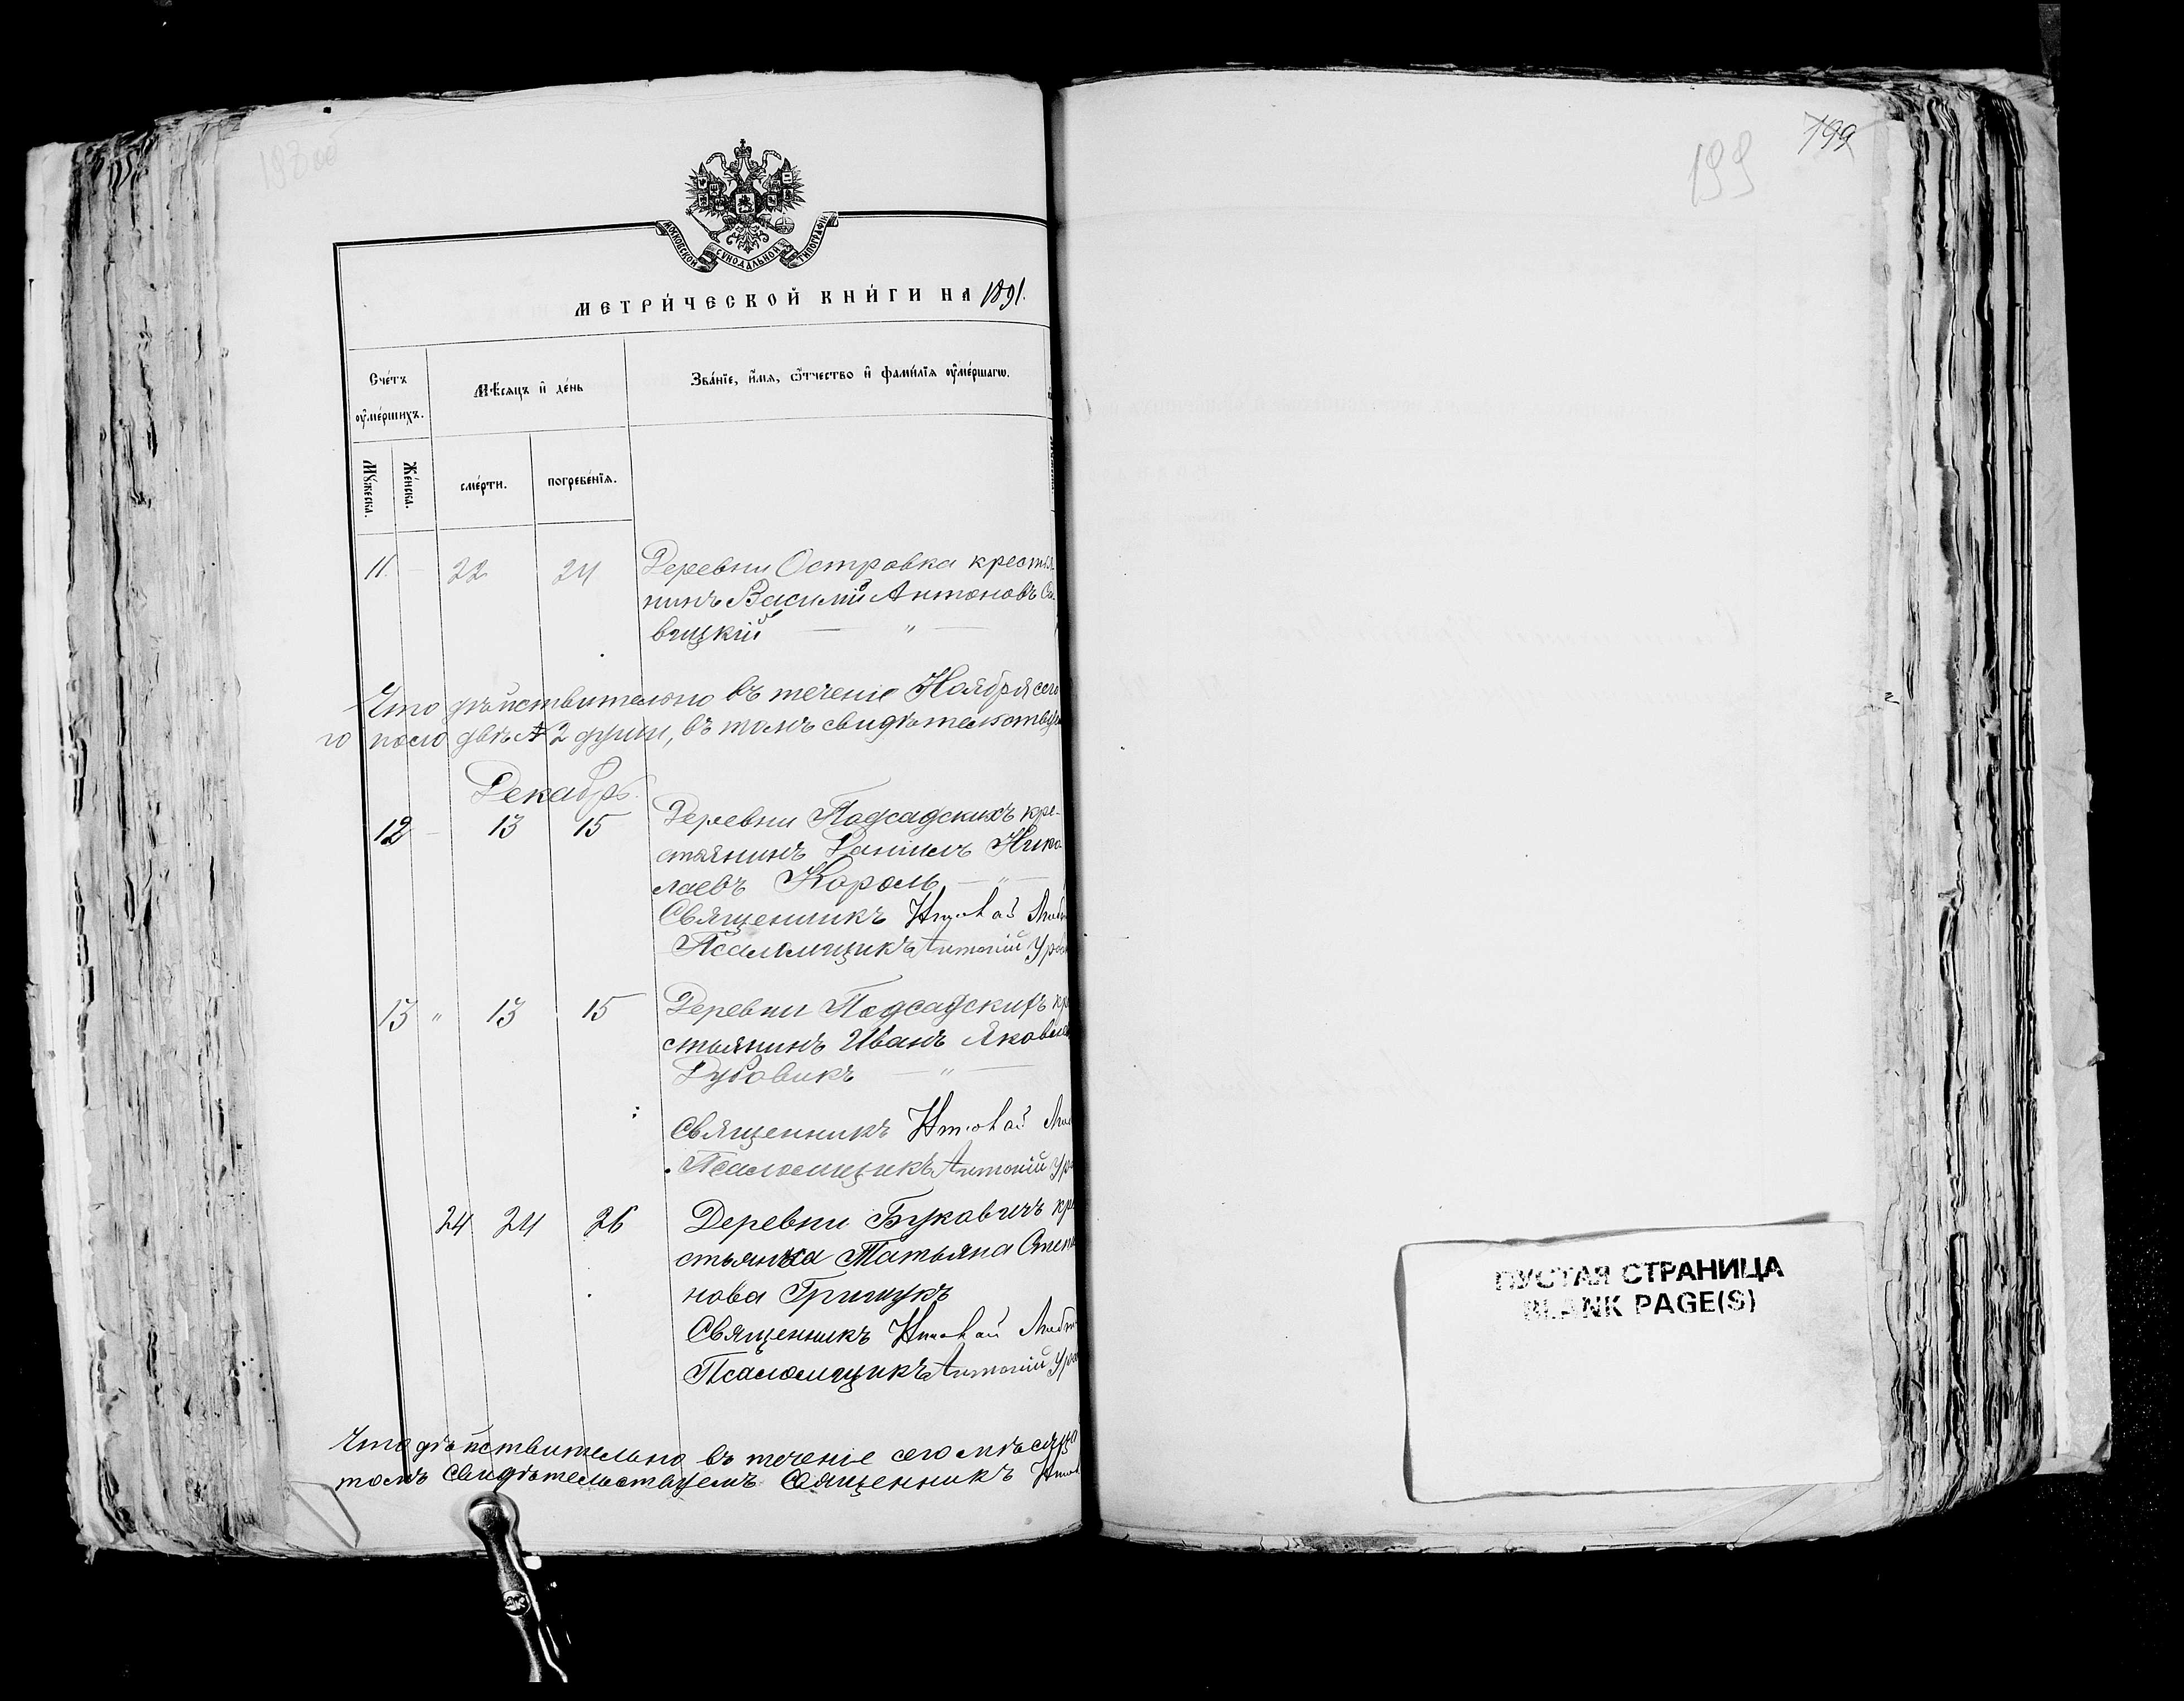 198 об
МОСКОВСКОЙ СУНОДАЛЬНОЙ ТИПОГРАФІИ
МЕТРИ́ЧЕСКОЙ КНИ́ГИ НА 1891.
Сче́тъ оу҆ме́ршихъ.
Мѣ́сяцъ и҆ де́нь
Зва́нїе, и҆́мѧ, ѻ҆́тчество и҆ фами́лїѧ оу҆ме́ршагѡ.
Мꙋ́жеска.
Же́нска.
сме́рти.
погребе́нїѧ.
11. — 22 24 Деревни Островка крестья-
нинъ Василій Антоновъ
вицкій — " —
Что дѣйствительно въ теченіе Ноября сего
го после двѣ № 2 другии, въ томъ свидѣтельствуе
Декабрь.
12 — 13 15 Деревни Подсадскихъ кре-
стьянинъ Даніилъ Нико
лаевъ Король — " —
Священникъ
Псаломщикъ Антоній
13 " 13 15 Деревни Подсадскихъ кр
стьянинъ Иванъ Яковле
Дубовикъ — " —
Священникъ
Псаломщикъ Антоній
24 24 26 Деревни Буковичъ кре
стьянка Татьяна Степа
нова Грищукъ
Священникъ
Псаломщикъ Антоній
Что дѣйствительно въ теченіе сего мѣсяца
томъ свидѣтельствуемъ Священникъ
199
199
ПУСТАЯ СТРАНИЦА
BLANK PAGE(S)